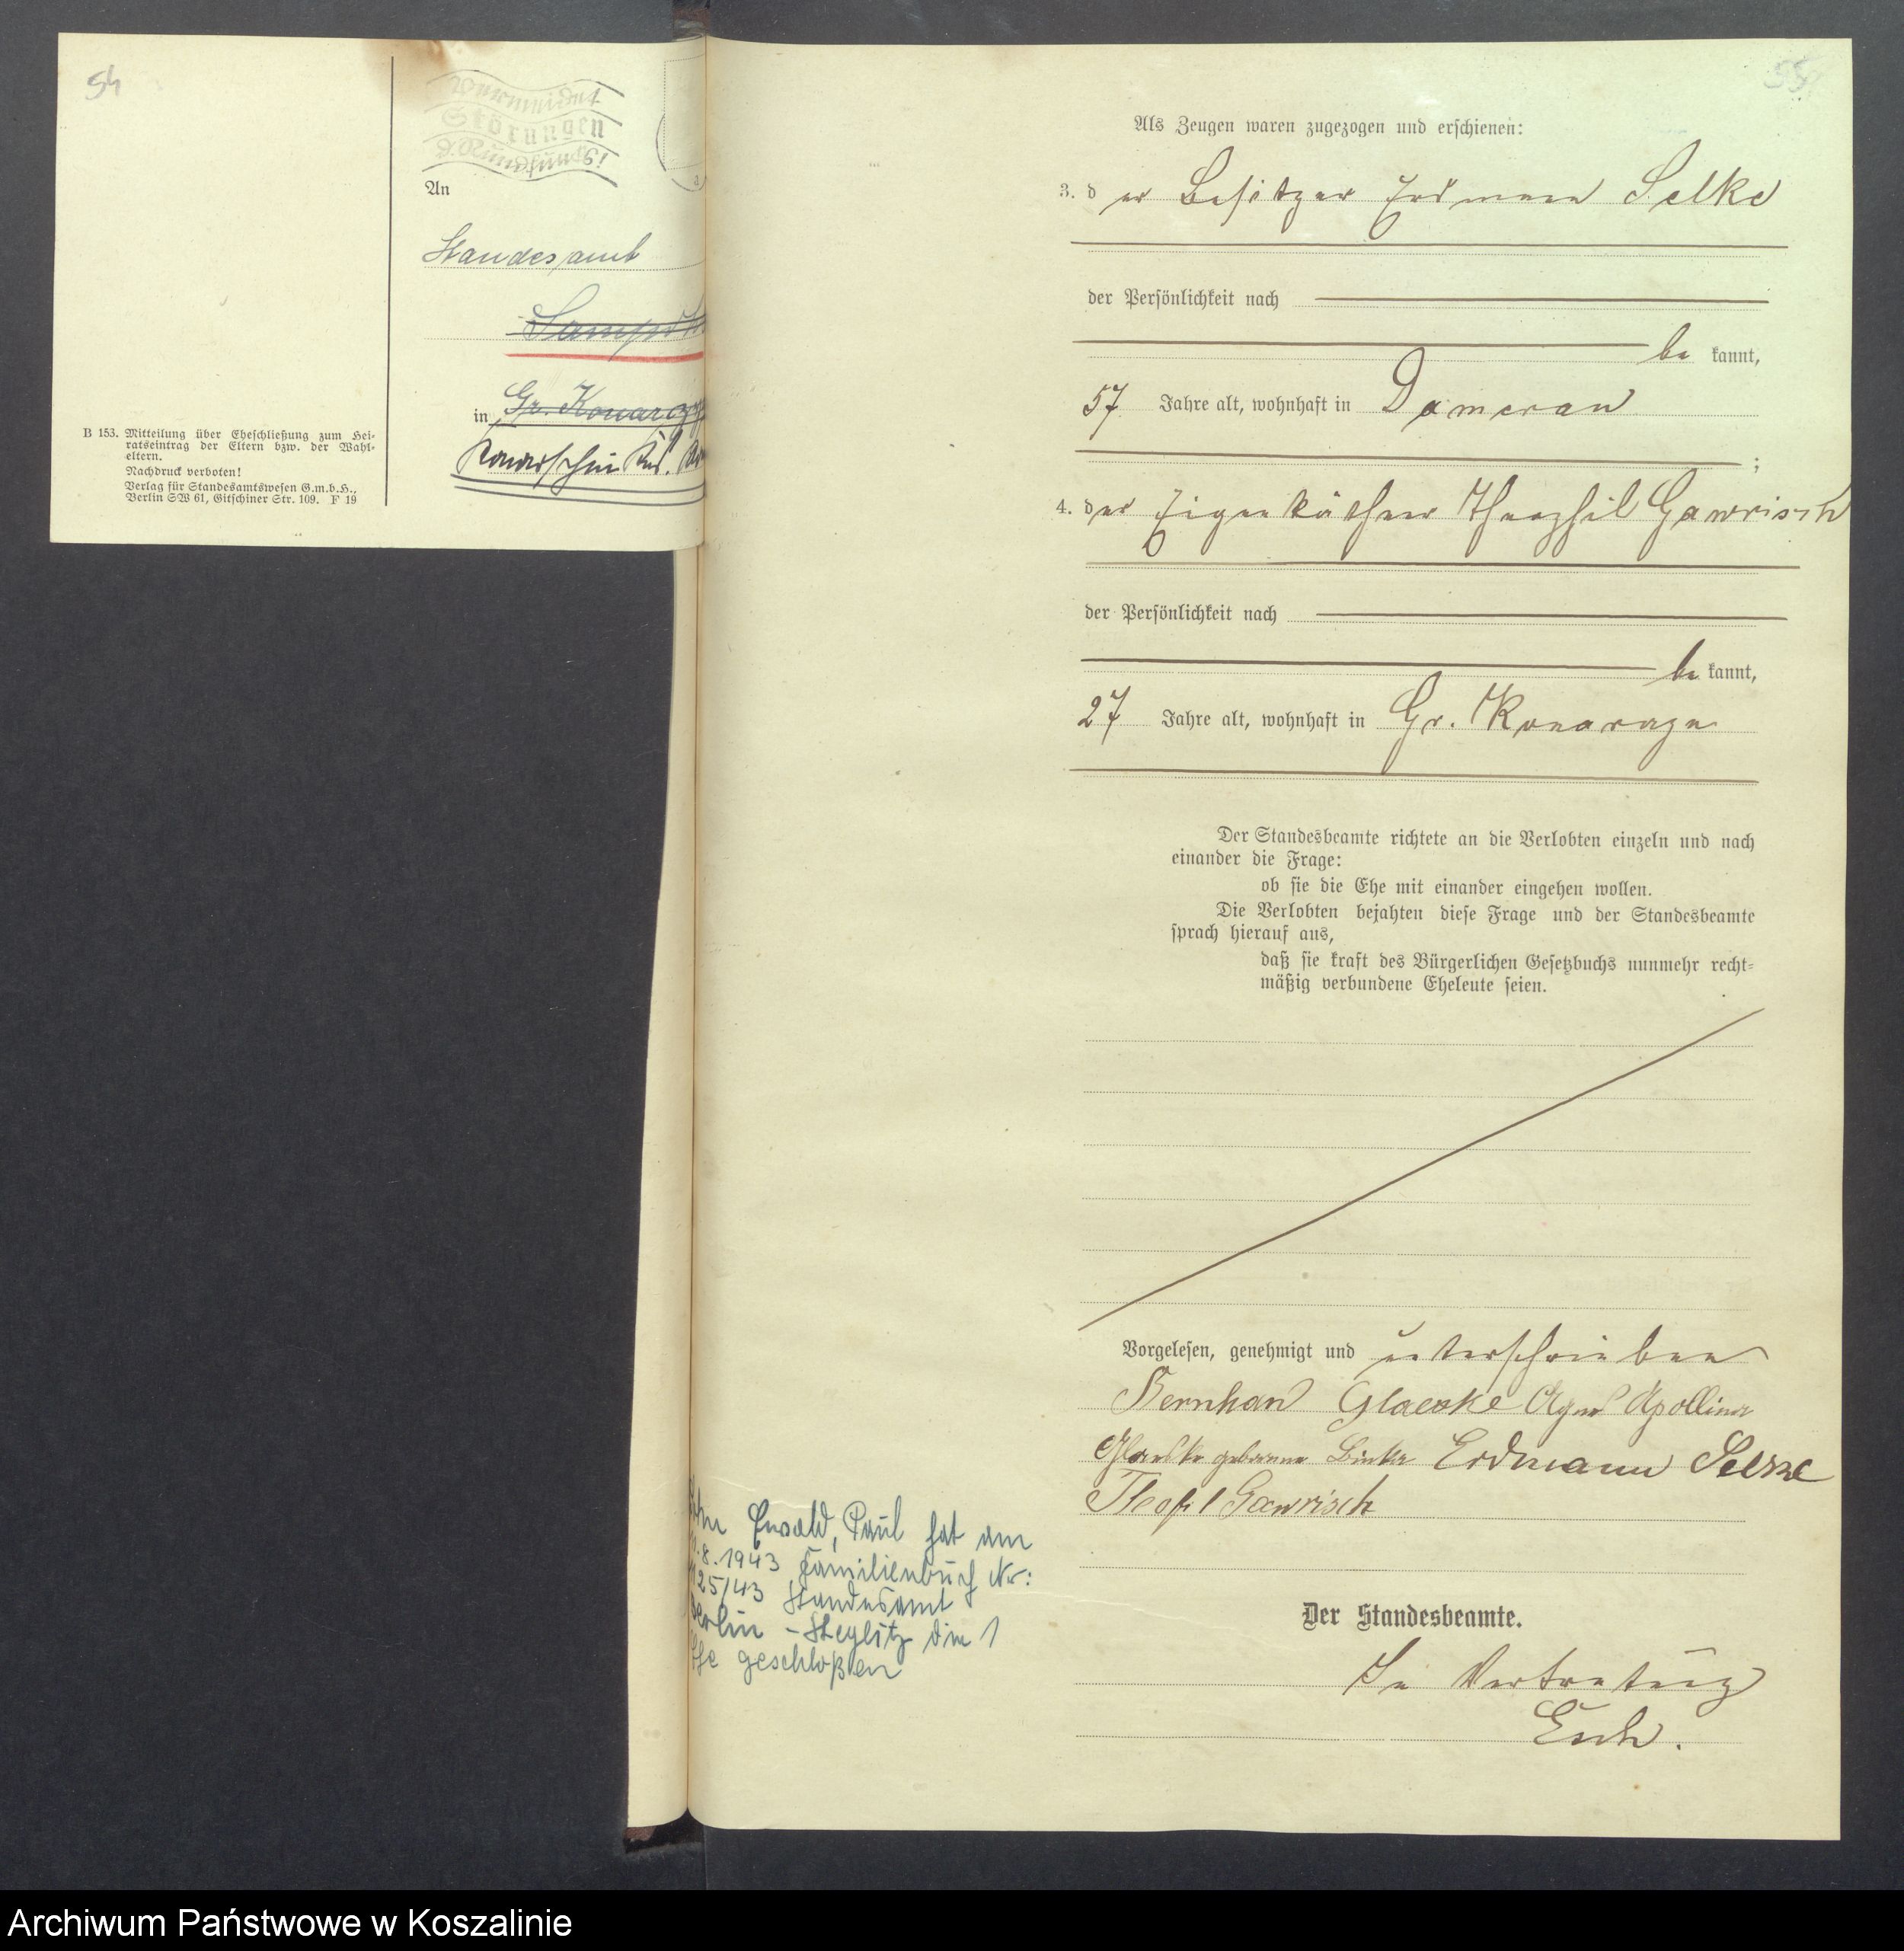 54
Vermeidet
Störungen
d. Rundfunks!
An
Standesamt
in Gr. Konarczyn
B 153. Mitteilung über Eheschließung zum Hei-
ratseintrag der Eltern bzw. der Wahl-
eltern.
Nachdruck verboten!
Verlag für Standesamtswesen G.m.b.H.,
Berlin SW 61, Gitschiner Str. 109. F 19
55
Als Zeugen waren zugezogen und erschienen:
3. der Besitzer Erdmann Selke
der Persönlichkeit nach
bekannt,
57 Jahre alt, wohnhaft in Damerau
;
4. der Eigenkäthner Theophil Gawrisch
der Persönlichkeit nach
bekannt,
27 Jahre alt, wohnhaft in Gr. Konarzyn
Der Standesbeamte richtete an die Verlobten einzeln und nach
einander die Frage:
ob sie die Ehe mit einander eingehen wollen.
Die Verlobten bejahten diese Frage und der Standesbeamte
sprach hierauf aus,
daß sie kraft des Bürgerlichen Gesetzbuchs nunmehr recht-
mäßig verbundene Eheleute seien.
Vorgelesen, genehmigt und unterschrieben
Bernhard Glaeske Agnes Apollina
Glaeske geborene Erdmann Selke
Teofil Gawrisch
Ewald, Paul hat am
.8.1943 Familienbuch Nr:
25/43 Standesamt
Berlin - Steglitz die 1
Ehe geschloßen
Der Standesbeamte.
In Vertretung
Esch.
Archiwum Państwowe w Koszalinie